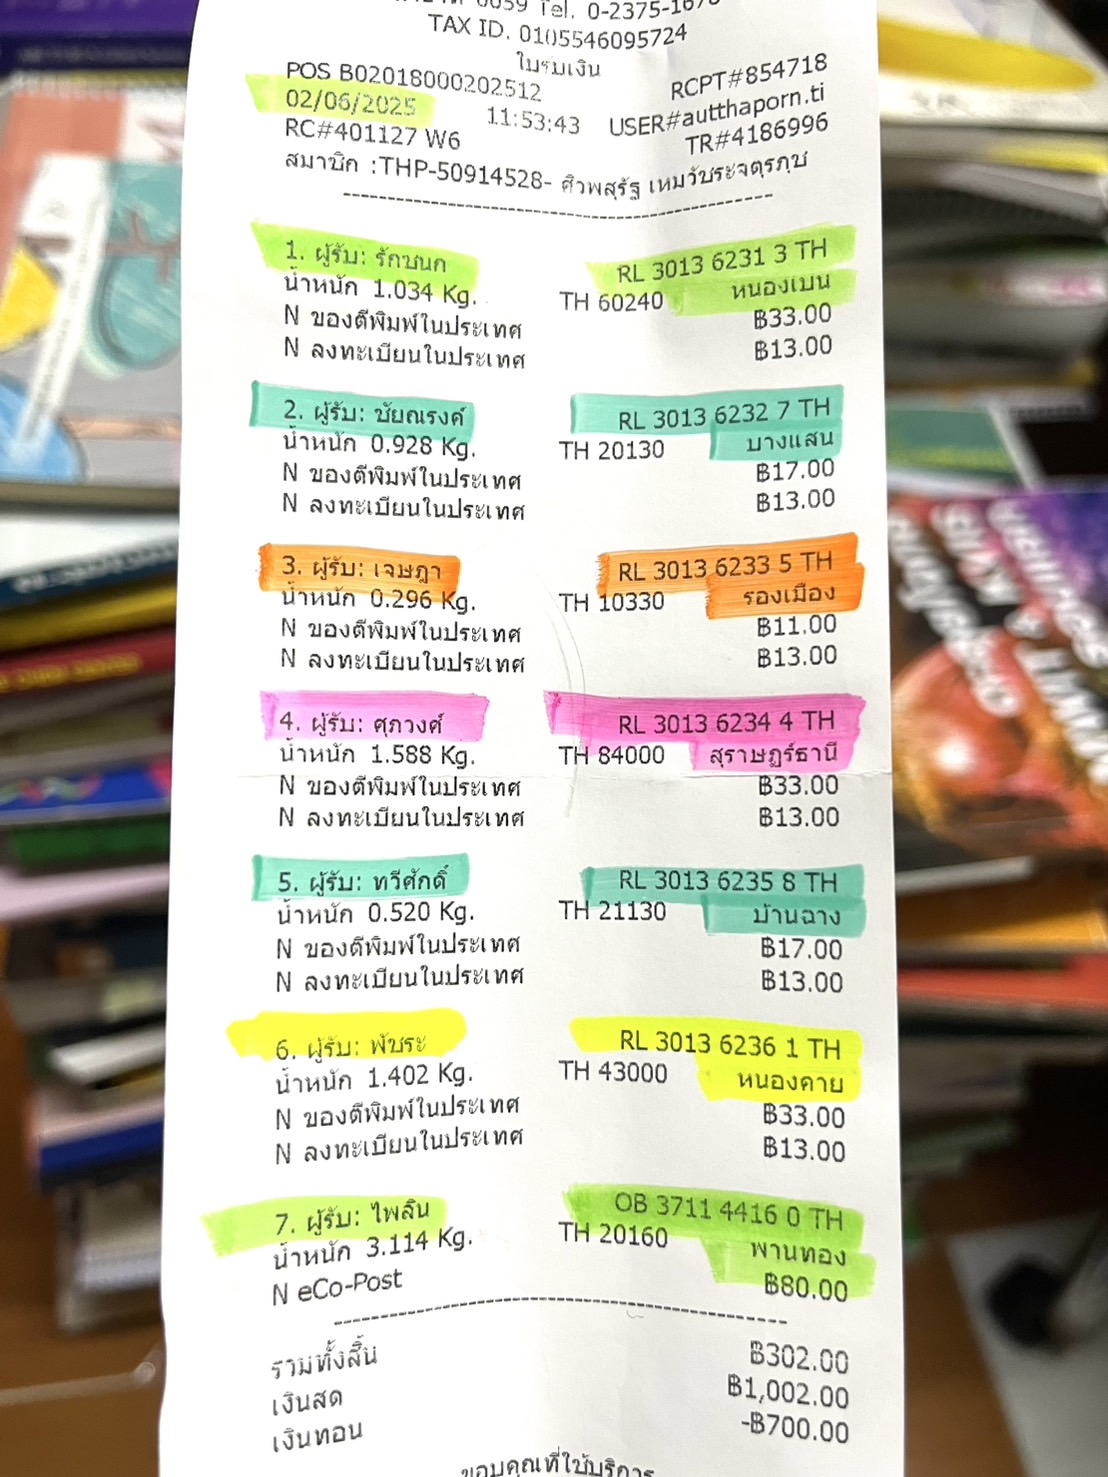 0059 Tel. 0-2375-1678
TAX ID. 0105546095724
ใบรับเงิน
POS B02018000202512 RCPT#854718
02/06/2025 11:53:43 USER#autthaporn.ti
RC#401127 W6 TR#4186996
สมาชิก :THP-50914528- ศิวพสุรัฐ เหมวัชระจตุรภุช
1. ผู้รับ: รักชนก RL 3013 6231 3 TH
น้ำหนัก 1.034 Kg. TH 60240 หนองเบน
N ของตีพิมพ์ในประเทศ ฿33.00
N ลงทะเบียนในประเทศ ฿13.00
2. ผู้รับ: ชัยณรงค์ RL 3013 6232 7 TH
น้ำหนัก 0.928 Kg. TH 20130 บางแสน
N ของตีพิมพ์ในประเทศ ฿17.00
N ลงทะเบียนในประเทศ ฿13.00
3. ผู้รับ: เจษฎา RL 3013 6233 5 TH
น้ำหนัก 0.296 Kg. TH 10330 รองเมือง
N ของตีพิมพ์ในประเทศ ฿11.00
N ลงทะเบียนในประเทศ ฿13.00
4. ผู้รับ: ศุภวงศ์ RL 3013 6234 4 TH
น้ำหนัก 1.588 Kg. TH 84000 สุราษฎร์ธานี
N ของตีพิมพ์ในประเทศ ฿33.00
N ลงทะเบียนในประเทศ ฿13.00
5. ผู้รับ: ทวีศักดิ์ RL 3013 6235 8 TH
น้ำหนัก 0.520 Kg. TH 21130 บ้านฉาง
N ของตีพิมพ์ในประเทศ ฿17.00
N ลงทะเบียนในประเทศ ฿13.00
6. ผู้รับ: พัชระ RL 3013 6236 1 TH
น้ำหนัก 1.402 Kg. TH 43000 หนองคาย
N ของตีพิมพ์ในประเทศ ฿33.00
N ลงทะเบียนในประเทศ ฿13.00
7. ผู้รับ: ไพลิน OB 3711 4416 0 TH
น้ำหนัก 3.114 Kg. TH 20160 พานทอง
N eCo-Post ฿80.00
รวมทั้งสิ้น ฿302.00
เงินสด ฿1,002.00
เงินทอน -฿700.00
ขอบคุณที่ใช้บริการ